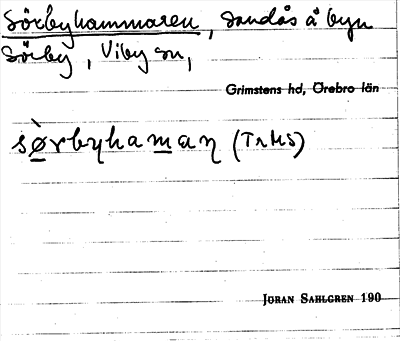 Sörbyhammaren, sandås å byn
Sörby, Viby sn,
Grimstens hd, Örebro län
sø̀rbyhamaɳ (TrMS)
JÖRAN SAHLGREN 190